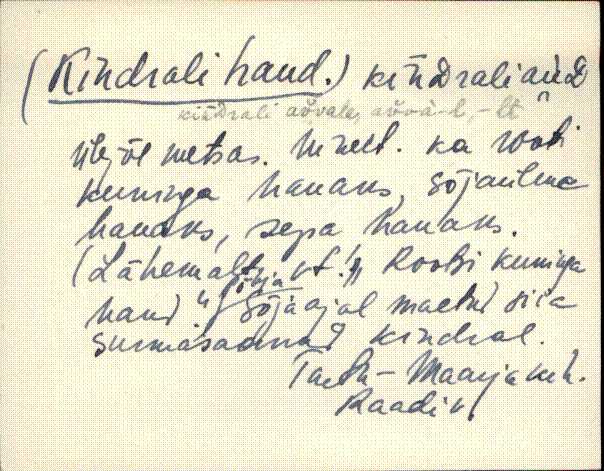 (Kindrali haud.) kindrali aùD
kindrali aǒvale, aǒvà-l, -lt
ülejõe metsas. Nimet. ka rootsi
kuninga hauaks, sõjaülema
hauaks, sepa hauaks.
(Lähemalt vt. „Rootsi kuninga
haud“ Põhja
sõja ajal maetud siia
surmasaanud kindral.
Tartu-Maarja khk.
Raadi v.